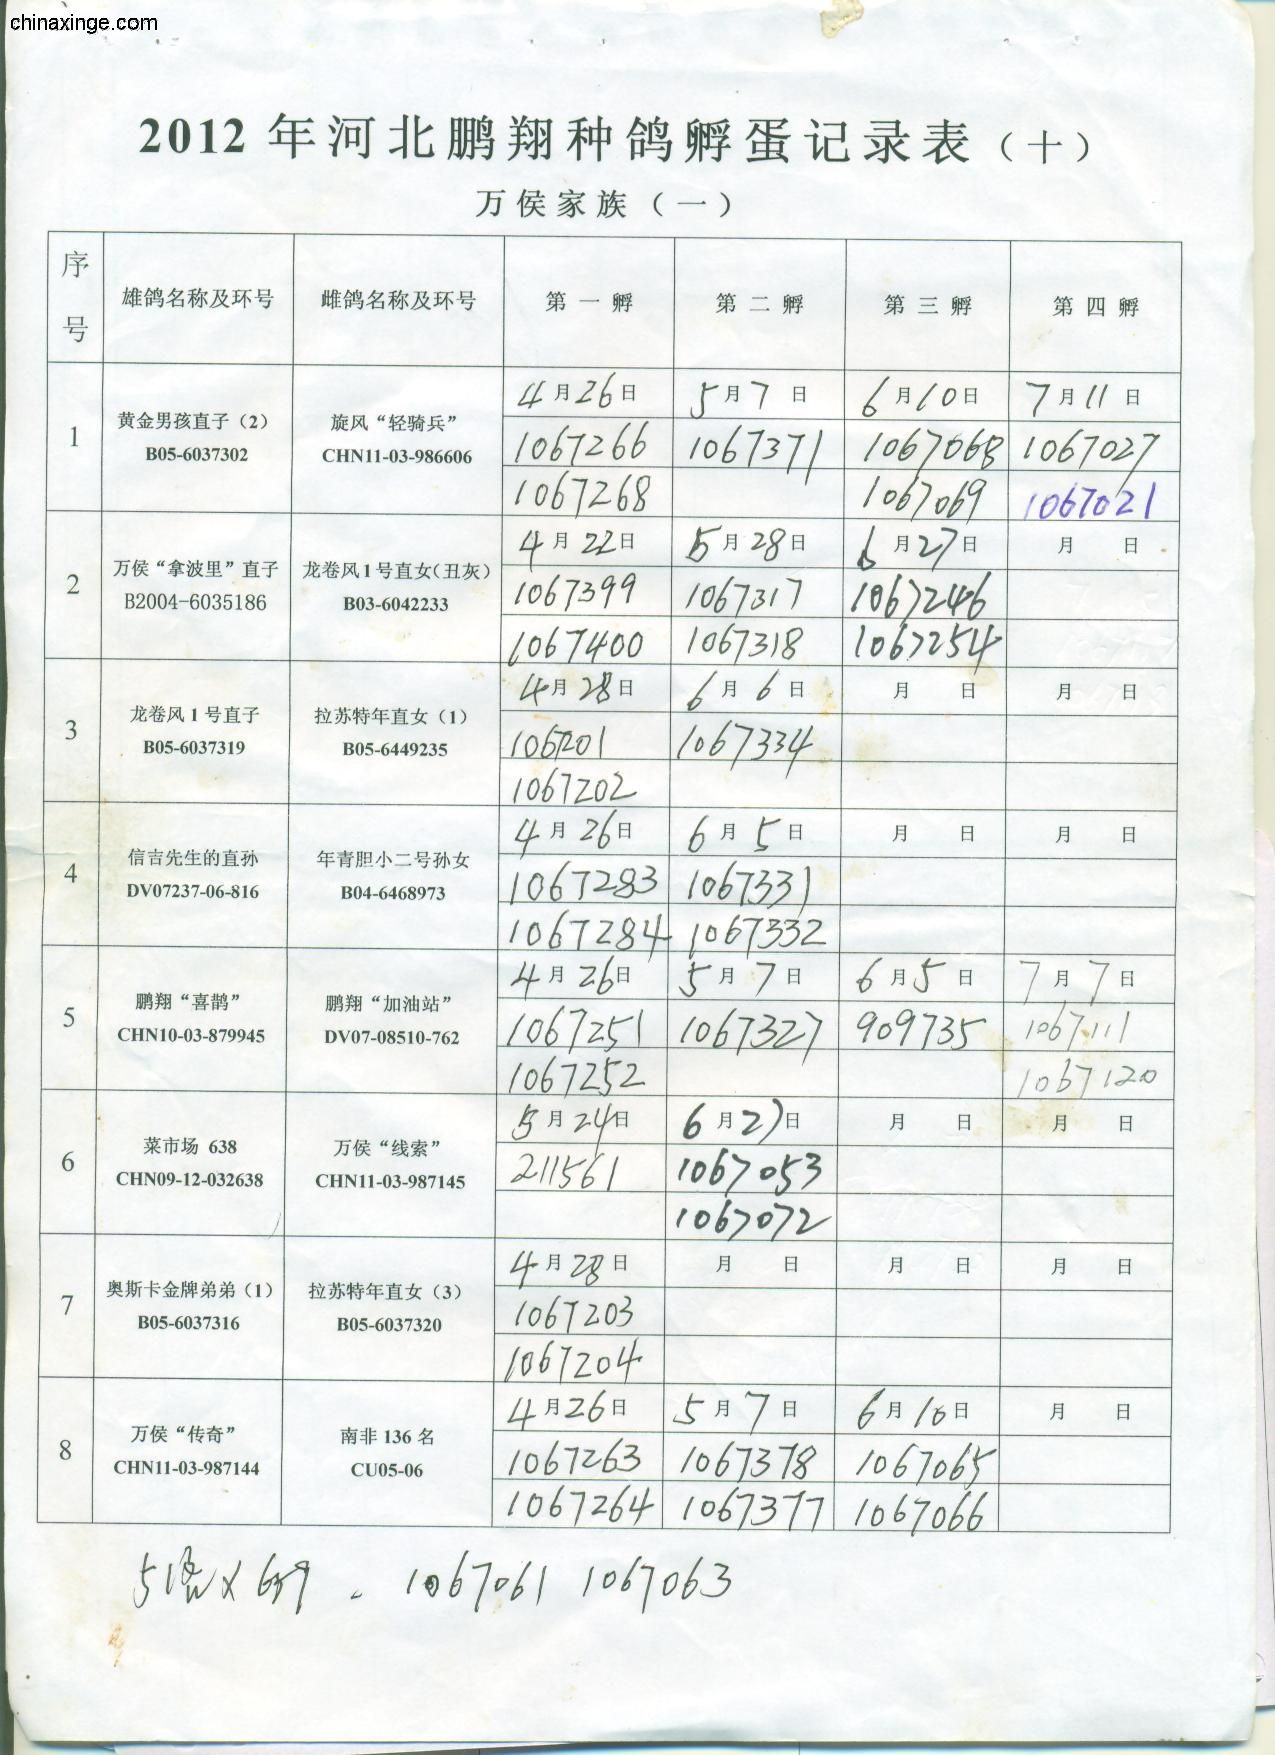 chinaxinge.com
2012年河北鹏翔种鸽孵蛋记录表（十）
万侯家族（一）
序号 雄鸽名称及环号 雌鸽名称及环号 第一孵 第二孵 第三孵 第四孵
4月26日 5月7日 6月10日 7月11日
1 黄金男孩直子（2） 旋风“轻骑兵” 1067266 1067371 1067068 1067027
B05-6037302 CHN11-03-986606 1067268 1067069 1067021
4月22日 5月28日 6月27日 月 日
2 万侯“拿波里”直子 龙卷风1号直女(丑灰) 1067399 1067317 1067246
B2004-6035186 B03-6042233 1067400 1067318 1067254
4月28日 6月6日 月 日 月 日
3 龙卷风1号直子 拉苏特年直女（1） 1067201 1067334
B05-6037319 B05-6449235 1067202
4月26日 6月5日 月 日 月 日
4 信吉先生的直孙 年青胆小二号孙女 1067283 1067331
DV07237-06-816 B04-6468973 1067284 1067332
4月26日 5月7日 6月5日 7月7日
5 鹏翔“喜鹊” 鹏翔“加油站” 1067251 1067327 909735 1067111
CHN10-03-879945 DV07-08510-762 1067252 1067120
5月24日 6月27日 月 日 月 日
6 菜市场 638 万侯“线索” 211561 1067053
CHN09-12-032638 CHN11-03-987145 1067072
4月28日 月 日 月 日 月 日
7 奥斯卡金牌弟弟（1） 拉苏特年直女（3） 1067203
B05-6037316 B05-6037320 1067204
4月26日 5月7日 6月10日 月 日
8 万侯“传奇” 南非136名 1067263 1067378 1067065
CHN11-03-987144 CU05-06 1067264 1067377 1067066
1067061 1067063